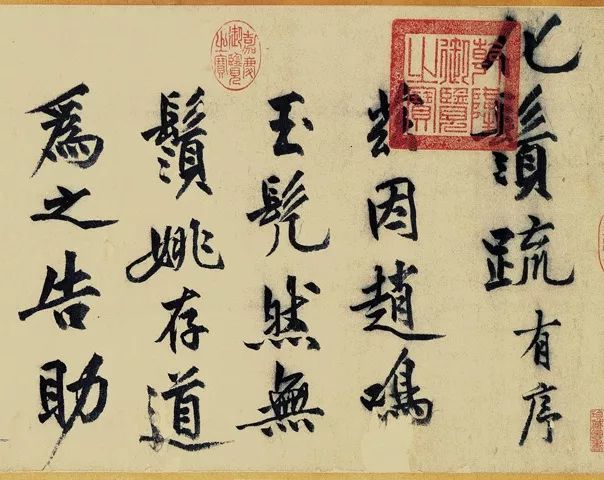 化鬚疏有序
兹因趙鳴
玉髠然無
鬚姚存道
為之告助
乾隆御覽之寶
嘉慶御覽之寶